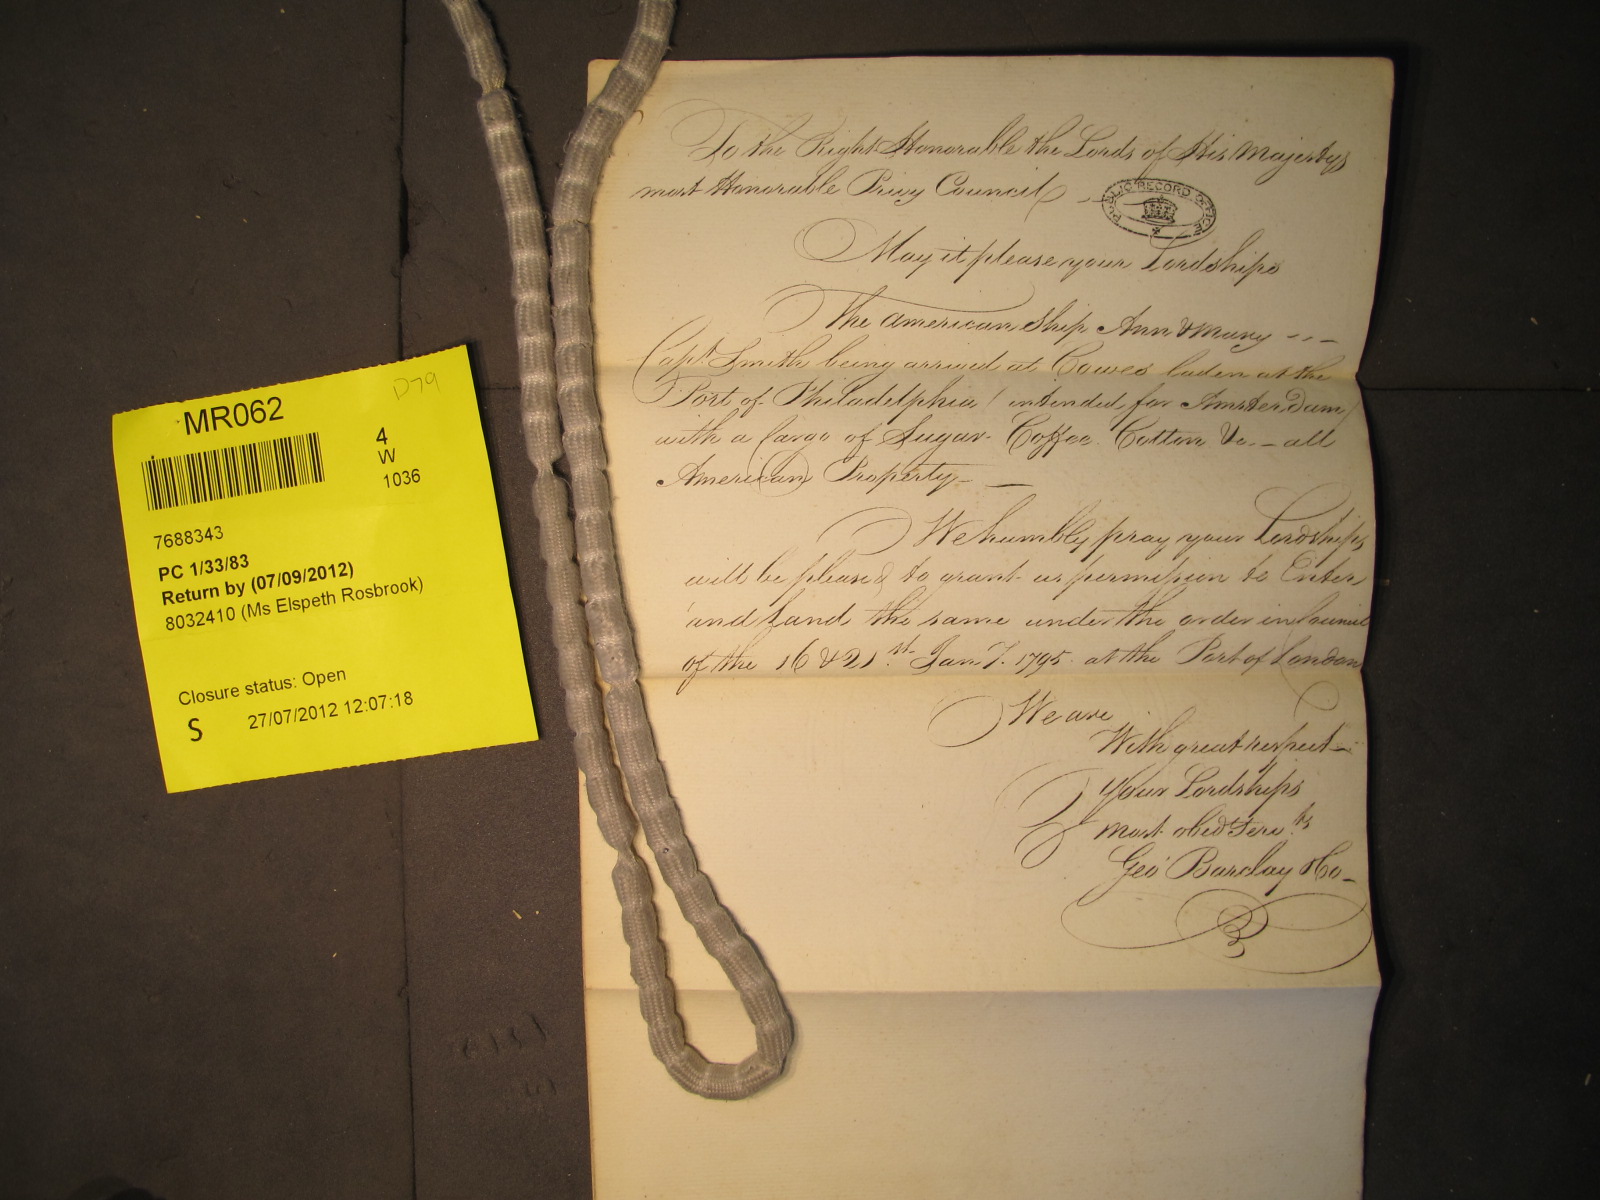 MR062
D79
4
W
1036
7688343
PC 1/33/83
Return by (07/09/2012)
8032410 (Ms Elspeth Rosbrook)
Closure status: Open
S 27/07/2012 12:07:18
To the Right Honorable the Lords of His Majestys
most Honorable Privy Council
PUBLIC RECORD OFFICE
May it please your Lordships
The American Ship Ann & Mary - - -
Capt. Smith being arrived at Cowes laden at the
Port of Philadelphia (intended for Amsterdam)
with a Cargo of Sugar Coffee Cotton &c. - all
American Property - -
We humbly pray your Lordships
will be pleased to grant us permission to Enter
and Land the same under the order in Council
of the 16 & 21st Jany. 1795 at the Port of London
We are
With great respect
Your Lordships
most obedt Servts
Geo Barclay & Co